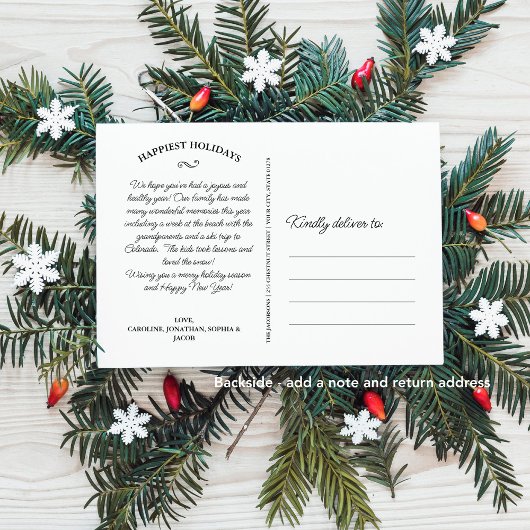 HAPPIEST HOLIDAYS
We hope you've had a joyous and
healthy year! Our family has made
many wonderful memories this year
including a week at the beach with the
grandparents and a ski trip to
Colorado. The kids took lessons and
loved the snow!
Wising you a merry holiday season
and Happy New Year!
LOVE,
CAROLINE, JONATHAN, SOPHIA &
JACOB
THE JACOBSONS | 253 CHESTNUT STREET | YOUR CITY, STATE 01278
Kindly deliver to:
Backside - add a note and return address